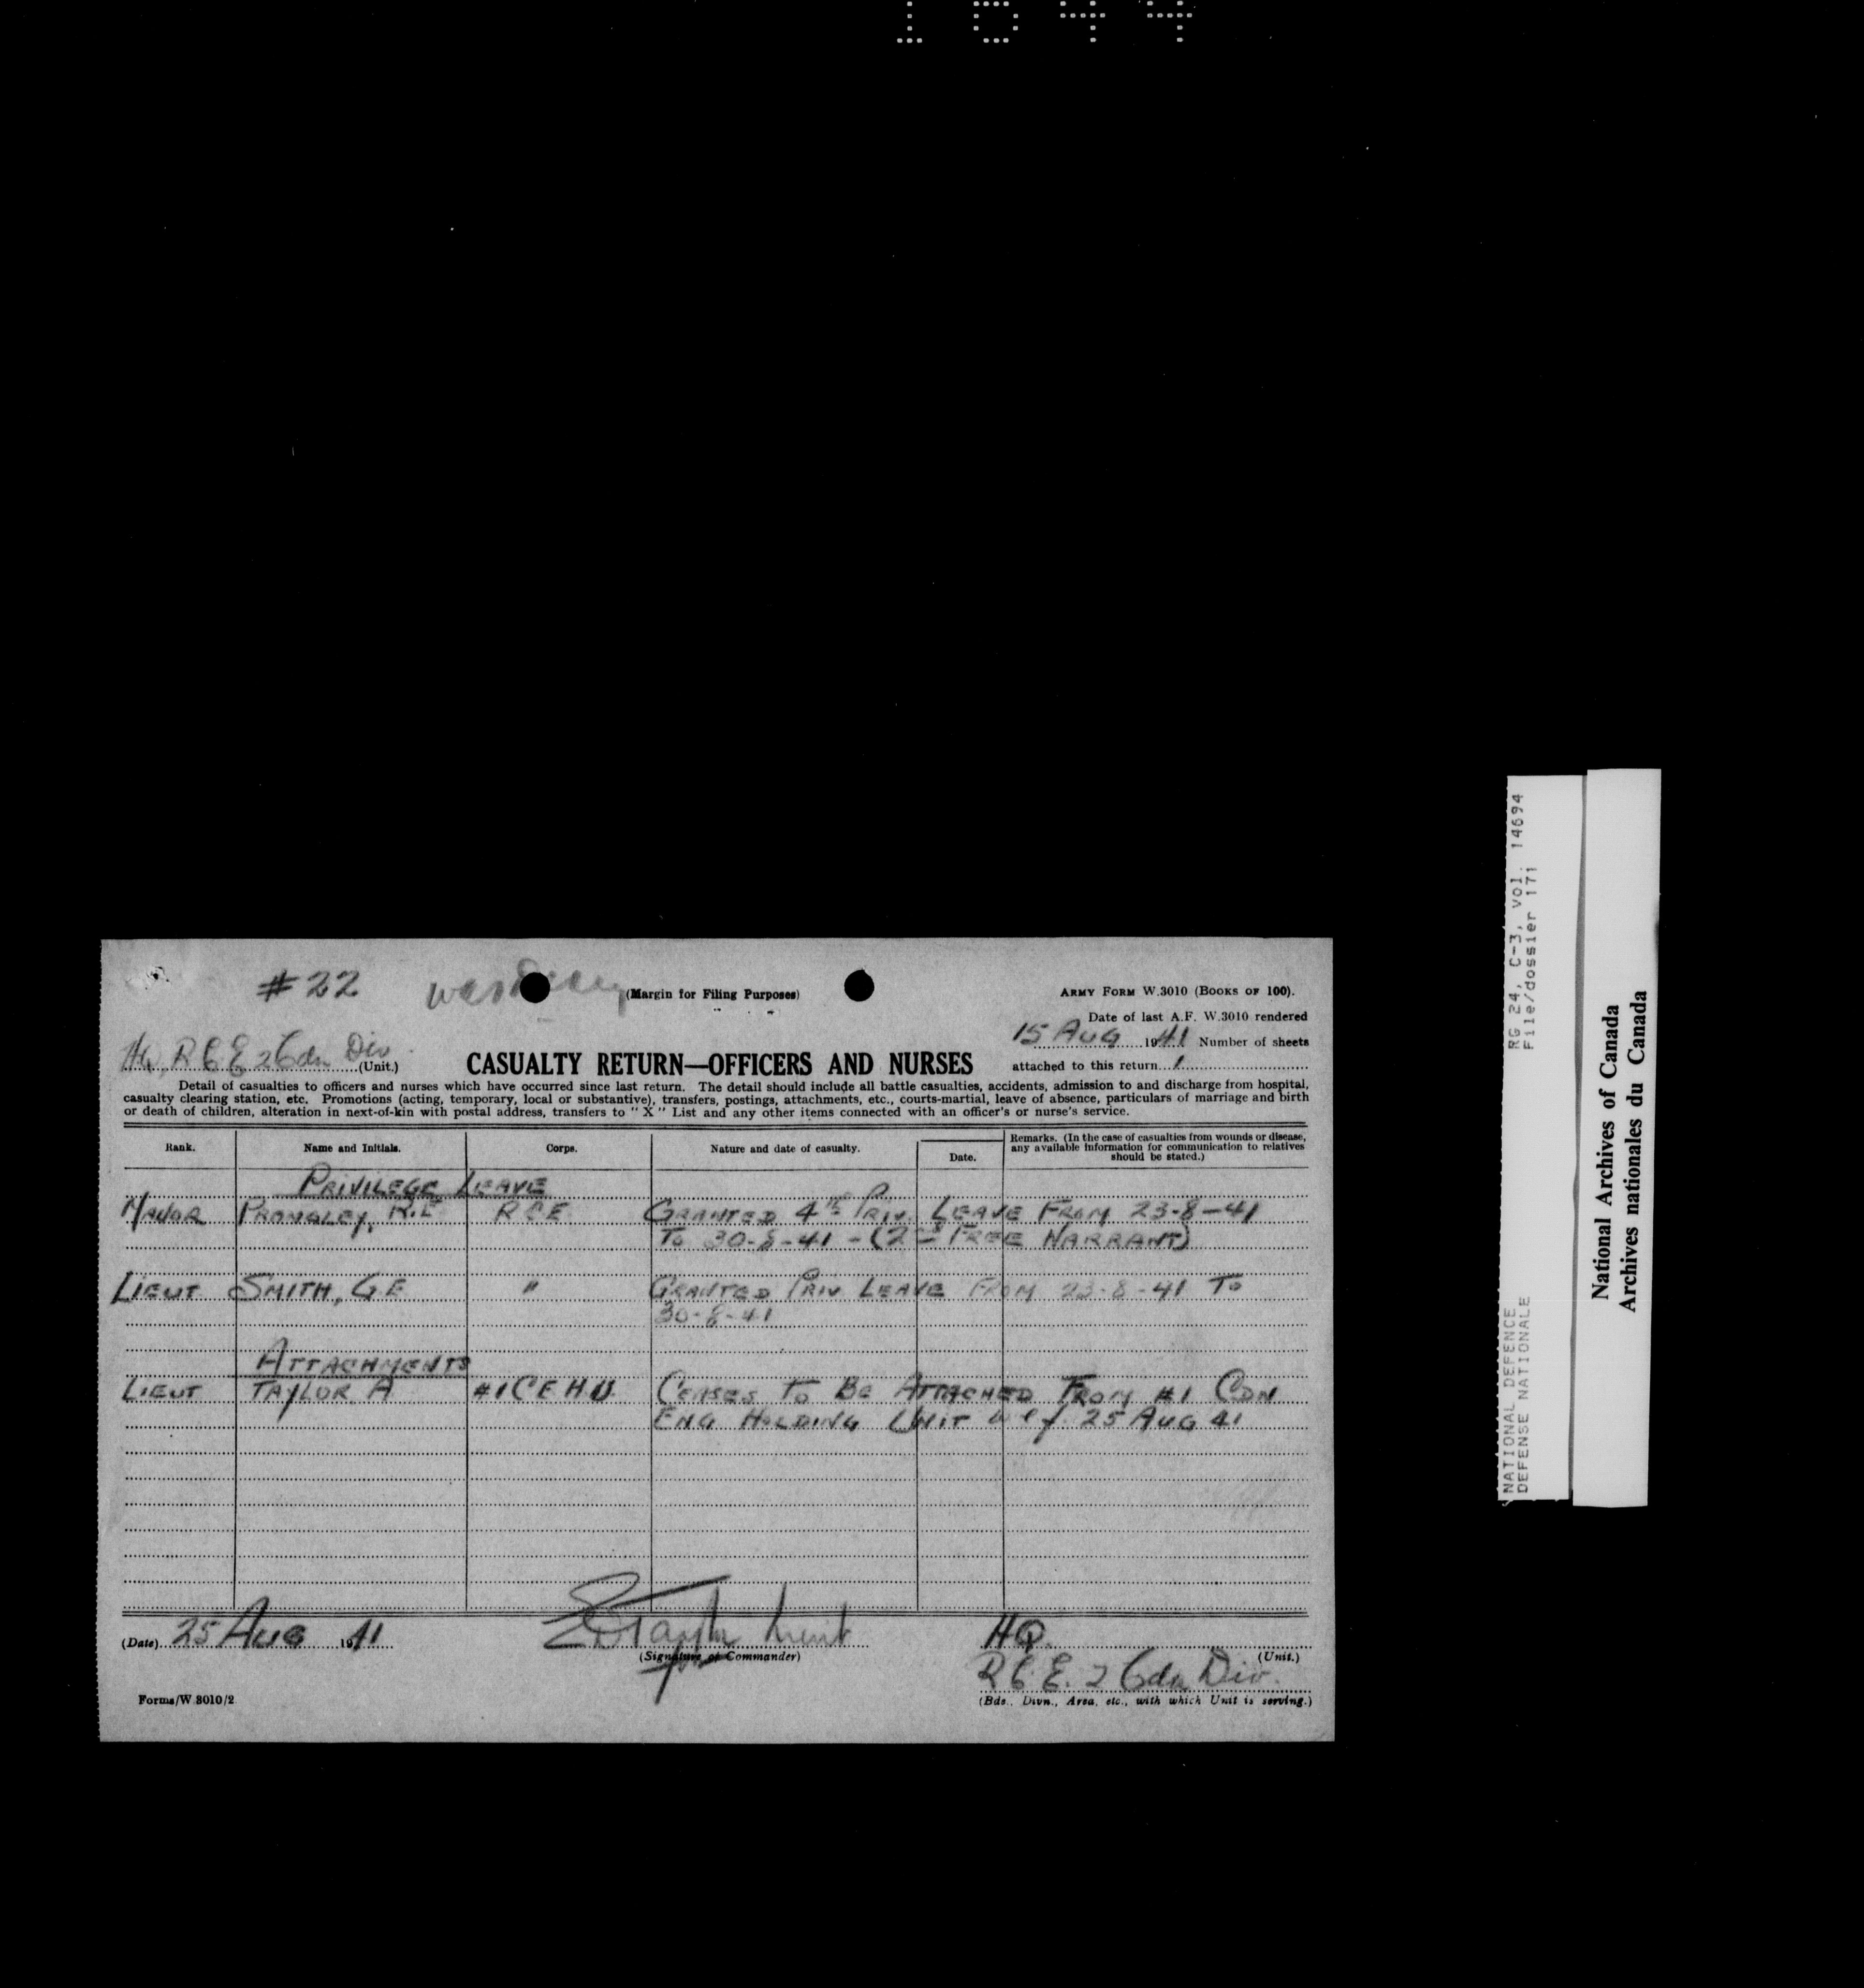 1644
# 22
(Margin for Filing Purposes)
ARMY FORM W.3010 (BOOKS OF 100).
Date of last A.F. W.3010 rendered
15 AUG 1941 Number of sheets
attached to this return 1
HQ, RCE 2 Cdn Div (Unit.)
CASUALTY RETURN—OFFICERS AND NURSES
Detail of casualties to officers and nurses which have occurred since last return. The detail should include all battle casualties, accidents, admission to and discharge from hospital,
casualty clearing station, etc. Promotions (acting, temporary, local or substantive), transfers, postings, attachments, etc., courts-martial, leave of absence, particulars of marriage and birth
or death of children, alteration in next-of-kin with postal address, transfers to " X " List and any other items connected with an officer's or nurse's service.
Rank. Name and Initials. Corps. Nature and date of casualty. Date. Remarks. (In the case of casualties from wounds or disease,
any available information for communication to relatives
should be stated.)
PRIVILEGE LEAVE
MAJOR PRONGLEY, R.E RCE GRANTED 4TH PRIV. LEAVE FROM 23-8-41
TO 30-8-41 - (2ND FREE WARRANT)
LIEUT SMITH, G.E " GRANTED PRIV LEAVE FROM 23-8-41 TO
30-8-41
ATTACHMENTS
LIEUT TAYLOR A #1 CEHU CEASES TO BE ATTACHED FROM #1 CDN
ENG HOLDING UNIT wef 25 AUG 41
(Date) 25 AUG 1941
(Signature of Commander)
for
HQ. (Unit.)
R.C.E. 2 Cdn Div.
(Bde., Divn., Area, etc., with which Unit is serving.)
Forms/W.3010/2
RG 24, C-3, vol. 14694
File/dossier 171
NATIONAL DEFENCE
DEFENSE NATIONALE
National Archives of Canada
Archives nationales du Canada